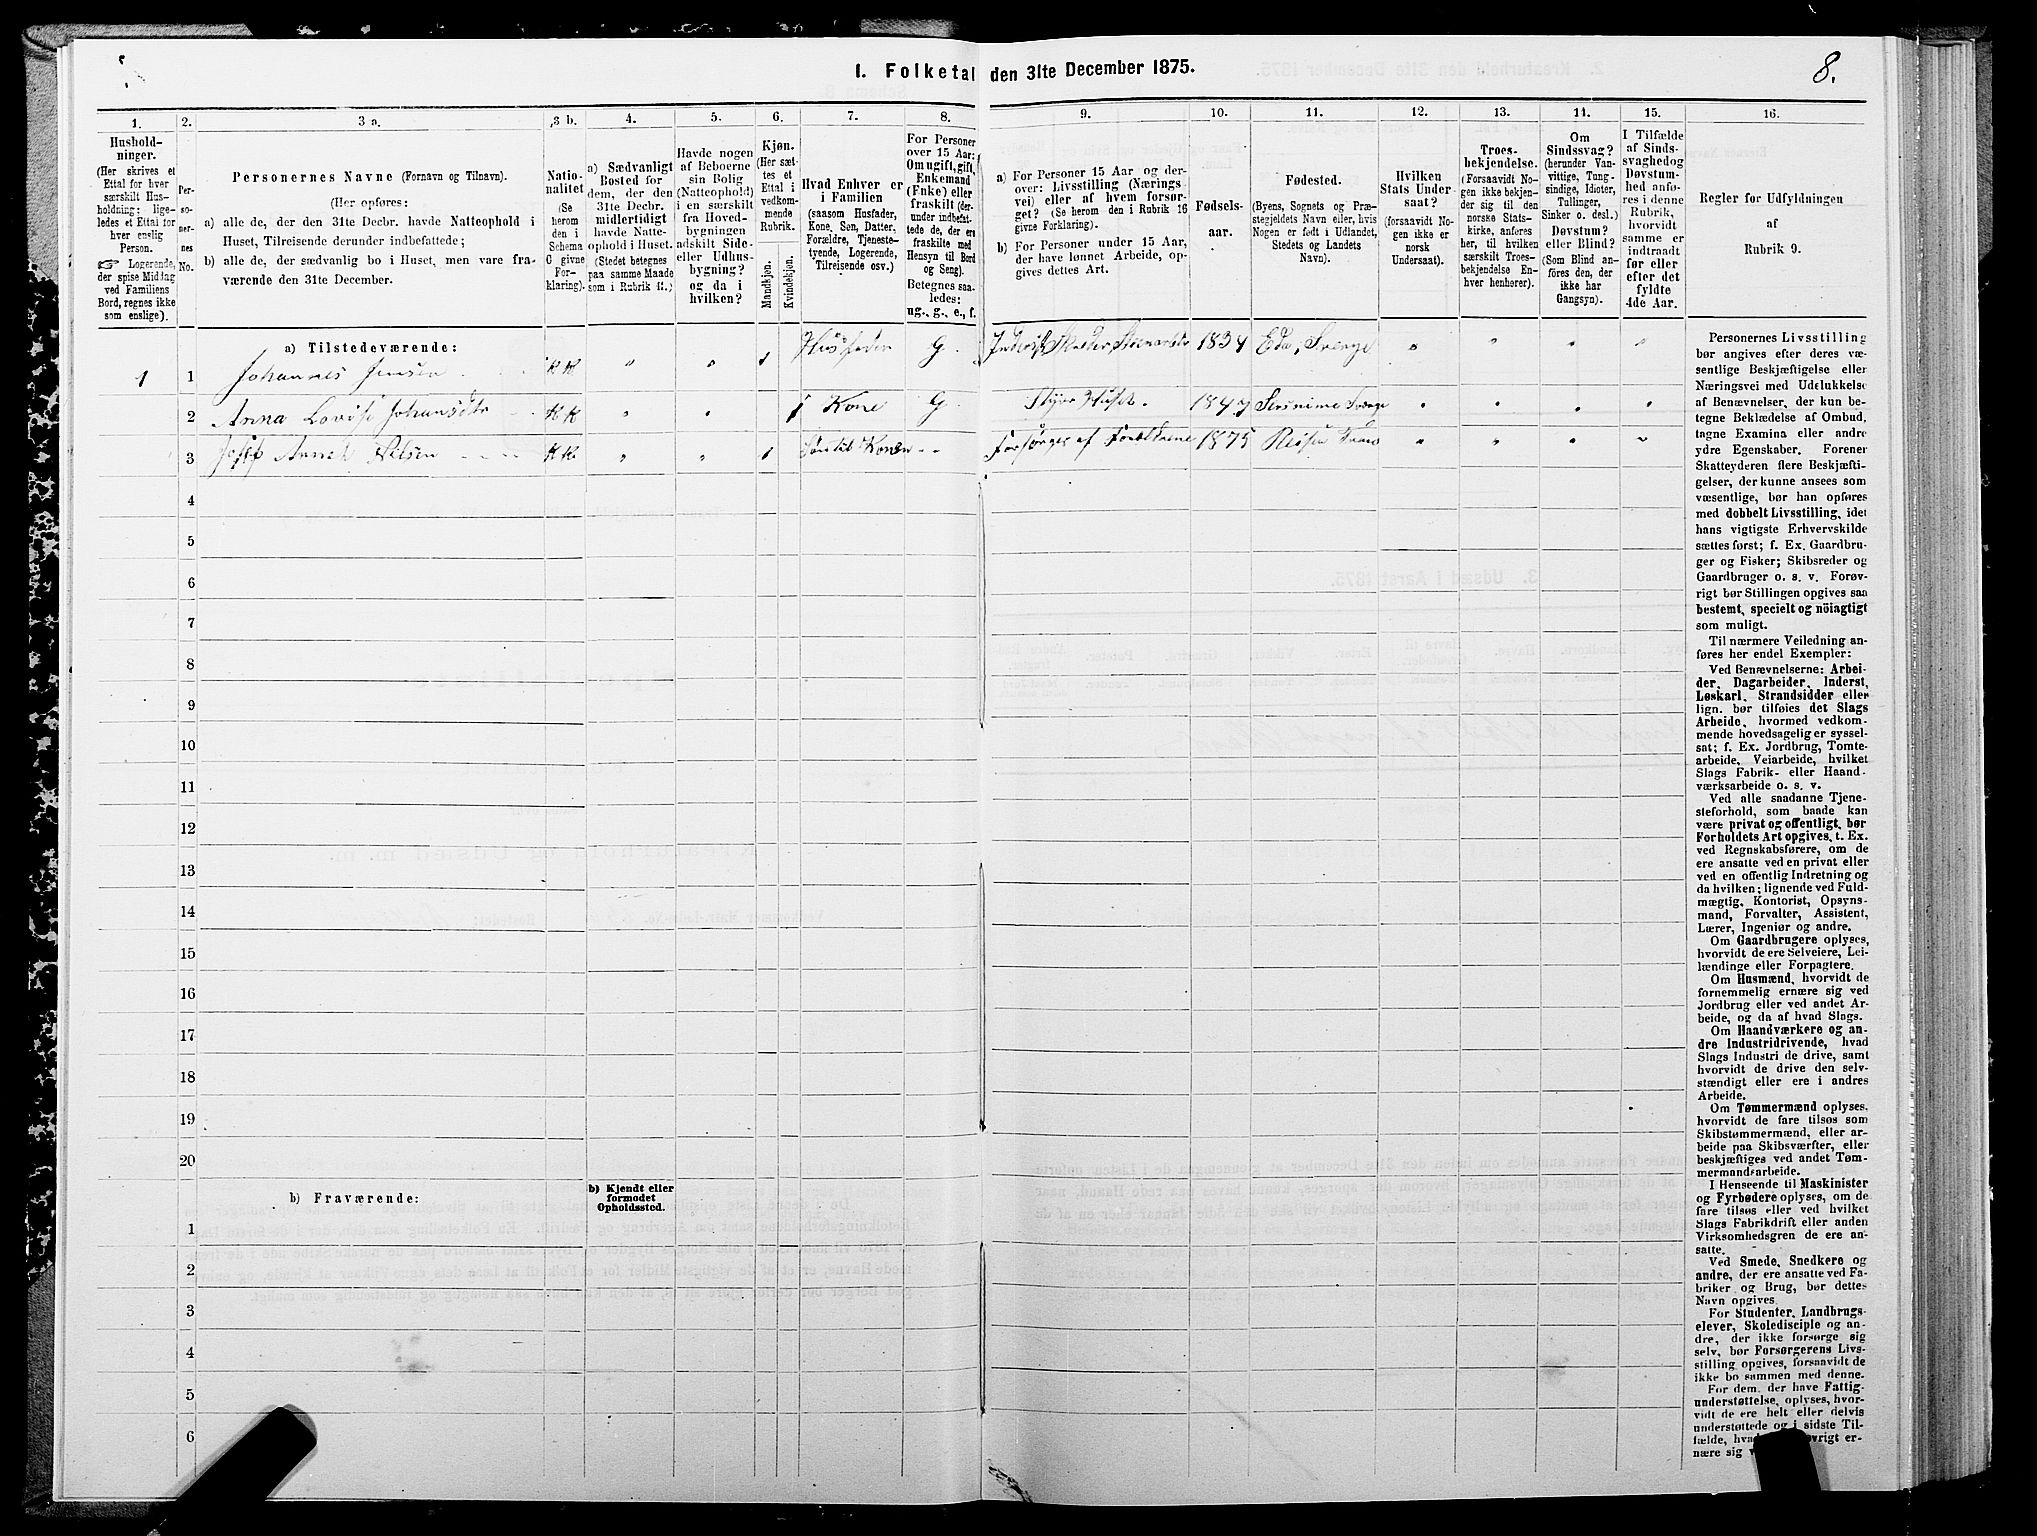 I. Folketal den 31te December 1875.
8.
1.
Husholdninger.
(Her skrives et
Ettal for hver
særskilt Husholdning; ligeledes et Ettal for
hver enslig
Person.
☞ Logerende,
der spise Middag
ved Familiens
Bord, regnes ikke
som enslige).
2.
Personernes
No.
3 a.
Personernes Navne (Fornavn og Tilnavn).
(Her opføres:
a) alle de, der den 31te Decbr. havde Natteophold i
Huset, Tilreisende derunder indbefattede;
b) alle de, der sædvanlig bo i Huset, men vare fraværende den 31te December.
3 b.
Nationalitet
(Se
herom
den i
Schema
C givne
Forklaring).
4.
a) Sædvanligt
Bosted for
dem, der den
31te Decbr.
midlertidigt
havde Natteophold i Huset.
(Stedet betegnes
paa samme Maade
som i Rubrik 11.)
5.
Havde nogen
af Beboerne
sin Bolig
(Natteophold)
i en særskilt
fra Hovedbygningen
adskilt Side-
eller Udhusbygning?
og da i
hvilken?
6.
Kjøn.
(Her sættes et
Ettal i
vedkommende
Rubrik.
Mandkjøn.
Kvindekjøn.
7.
Hvad Enhver er
i Familien
(saasom Husfader,
Kone, Søn, Datter,
Forældre, Tjenestetyende, Logerende,
Tilreisende osv.)
8.
For Personer
over 15 Aar:
Om ugift, gift,
Enkemand
(Enke) eller
fraskilt (derunder indbefattede de, der ere
fraskilte med
Hensyn til Bord
og Seng).
Betegnes saaledes:
ug., g., e., f.
9.
a) For Personer 15 Aar og derover: Livsstilling (Næringsvei) eller af hvem forsørget? (Se herom den i Rubrik 16
givne Forklaring).
b) For Personer under 15 Aar,
der have lønnet Arbeide, opgives dettes Art.
10.
Fødselsaar.
11.
Fødested.
(Byens, Sognets og Præstegjeldets Navn eller, hvis
Nogen er født i Udlandet,
Stedets og Landets
Navn).
12.
Hvilken
Stats Undersaat?
(forsaavidt Nogen ikke er
norsk
Undersaat).
13.
Troesbekjendelse.
(Forsaavidt Nogen ikke bekjender sig til den
norske Statskirke, anføres
her, til hvilken
særskilt Troesbekjendelse Enhver henhører).
14.
Om
Sindssvag?
(herunder Vanvittige, Tungsindige, Idioter,
Tullinger,
Sinker o. desl.)
Døvstum?
eller Blind?
(Som Blind anføres den, der
ikke har
Gangsyn).
15.
I Tilfælde
af Sindssvaghed og
Døvstumhed anføres i denne
Rubrik,
hvorvidt
samme er
indtraadt
før eller
efter det
fyldte
4de Aar.
16.
Regler for Udfyldningen
af
Rubrik 9.
a) Tilstedeværende:
1 1 Johannes Jensen KK " " 1 Husfader G. 1834 Eda, Sverge " " " "
2 Anna Lovise Johansdtr KK " " 1 Kone G. 1847 Sverge " " " "
3 Nilsen KK " " 1 Søn til Konen Forsørges af Forældrene 1875 " " " "
4
5
6
7
8
9
10
11
12
13
14
15
16
17
18
19
20
b) Fraværende:
b) Kjendt eller
formodet
Opholdssted.
1
2
3
4
5
6
Personernes Livsstilling
bør angives efter deres væsentlige Beskjæftigelse eller
Næringsvei med Udelukkelse
af Benævnelser, der kun betegne Beklædelse af Ombud,
tagne Examina eller andre
ydre Egenskaber. Forener
Skatteyderen flere Beskjæftigelser, der kunne ansees som
væsentlige, bør han opføres
med dobbelt Livsstilling, idet
hans vigtigste Erhvervskilde
sættes først; f. Ex. Gaardbruger og Fisker; Skibsreder og
Gaardbruger o. s. v. Forøvrigt bør Stillingen opgives saa
bestemt, specielt og nöiagtigt
som muligt.
Til nærmere Veiledning anføres her endel Exempler:
Ved Benævnelserne: Arbeider, Dagarbeider, Inderst,
Løskarl, Strandsidder eller
lign. bør tilføies det Slags
Arbeide, hvormed vedkommende hovedsagelig er sysselsat; f. Ex. Jordbrug, Tomtearbeide, Veiarbeide, hvilket
Slags Fabrik- eller Haandværksarbeide o. s. v.
Ved alle saadanne Tjenesteforhold, som baade kan
være privat og offentligt, bør
Forholdets Art opgives, t. Ex.
ved Regnskabsførere, om de
ere ansatte ved en privat eller
ved en offentlig Indretning og
da hvilken; lignende ved Fuldmægtig, Kontorist, Opsynsmand, Forvalter, Assistent,
Lærer, Ingeniør og andre.
Om Gaardbrugere oplyses,
hvorvidt de ere Selveiere, Leilændinge eller Forpagtere.
Om Husmænd, hvorvidt de
fornemmelig ernære sig ved
Jordbrug eller ved andet Arbeide, og da af hvad Slags.
Om Haandværkere og andre Industridrivende, hvad
Slags Industri de drive, samt
hvorvidt de drive den selvstændigt eller ere i andres
Arbeide.
Om Tømmermænd oplyses,
hvorvidt de fare tilsøs som
Skibstømmermænd, eller arbeide paa Skibsværfter, eller
beskjæftiges ved andet Tømmermandsarbeide.
I Henseende til Maskinister
og Fyrbødere oplyses, om de
fare tilsøs eller ved hvilket
Slags Fabrikdrift eller anden
Virksomhedsgren de ere ansatte.
Ved Smede, Snedkere og
andre, der ere ansatte ved Fabriker og Brug, bør dettes
Navn opgives.
For Studenter, Landbrugselever, Skoledisciple og andre, der ikke forsørge sig
selv, bør Forsørgerens Livsstilling opgives, forsaavidt de
ikke bo sammen med denne.
For dem, der have Fattigunderstøttelse, oplyses, hvorvidt de ere helt eller delvis
understøttede og i sidste Tilfælde,
ernære sig